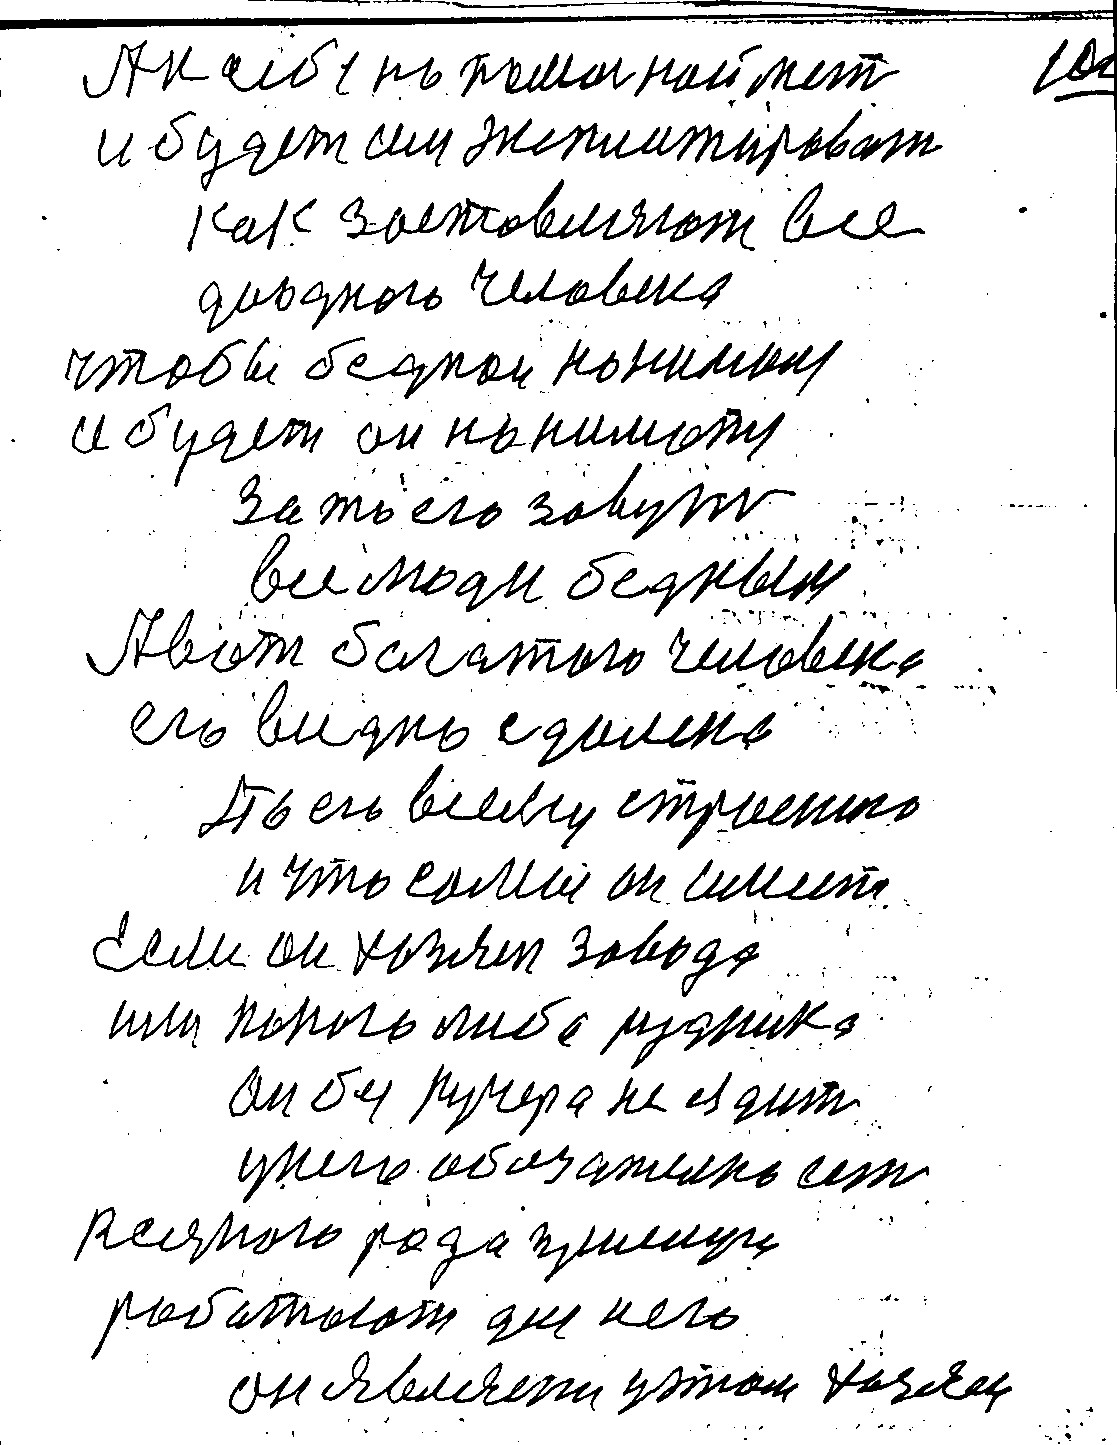 А к себе не помои наймет
и будет им эксплотироват
как зоставляют все
доходного человека
чтобы бедной нонимои
и будет он нонимоти
За то его зовутт
все люди бедным
А вот богатого человека
его видно сдолека
По его всему строению
и что самии он имеет
Если он хозяен завода
или какого либо рудника
Он без кучера не ездит
унего обозателно ест
Всякого рода
работают для него
он являетси уэтом хозяен